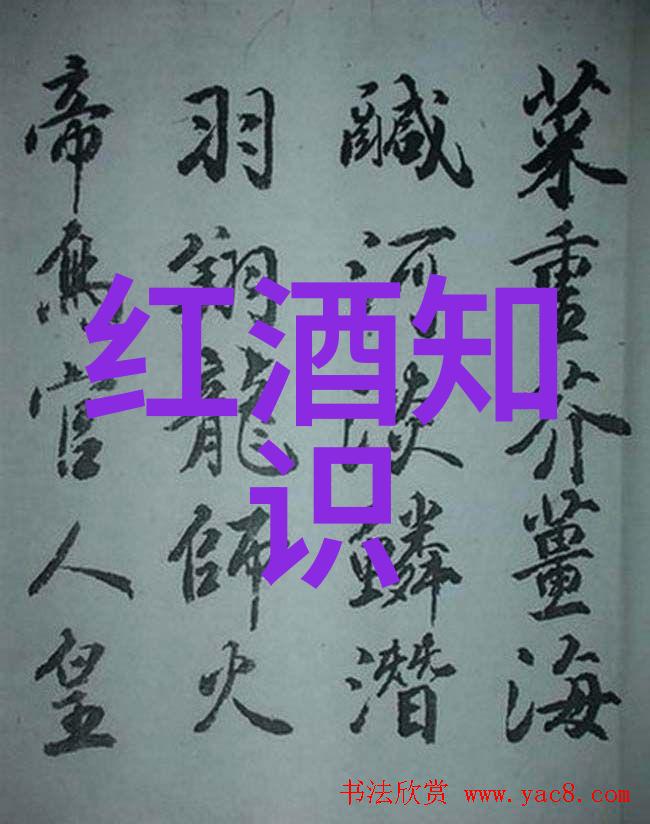 菜重芥薑海
鹹河淡鱗潛
羽翔龍師火
帝鳥官人皇
红酒知
识
书法欣赏 www.yac8.com